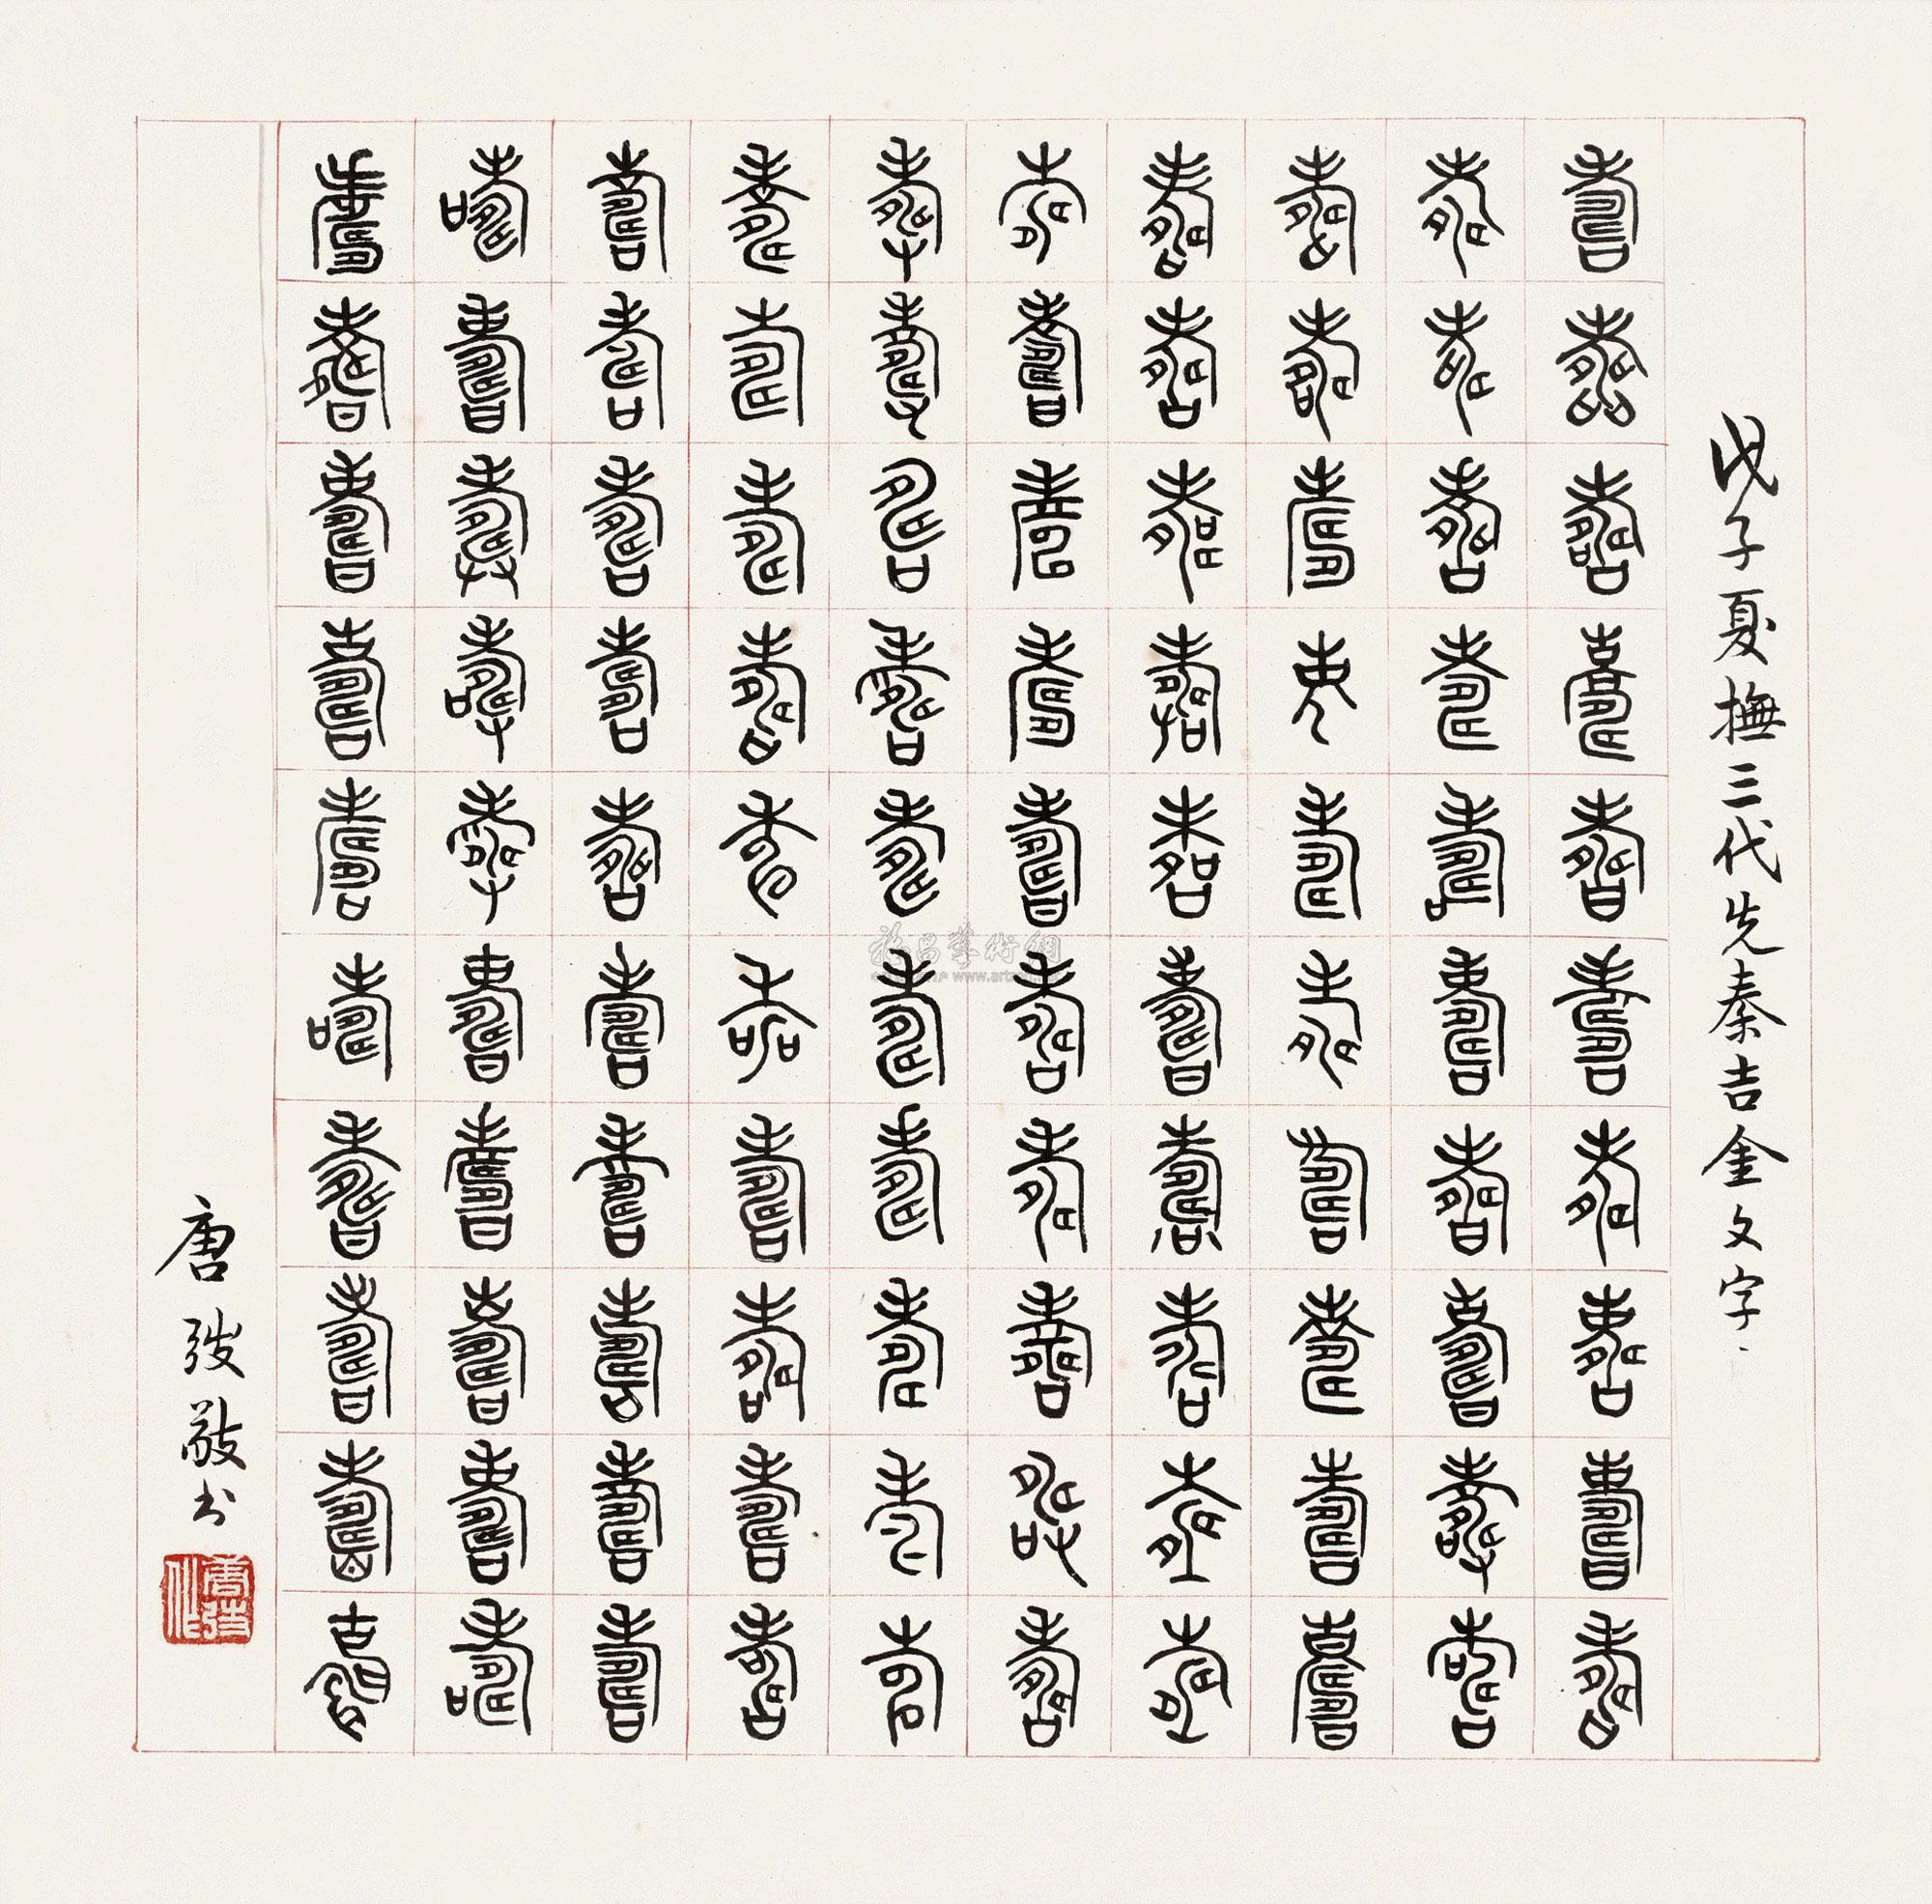 戊子夏撫三代先秦吉金文字
壽壽壽壽壽壽壽壽壽壽
壽壽壽壽壽壽壽壽壽壽
壽壽壽壽壽壽壽壽壽壽
壽壽壽壽壽壽壽壽壽壽
壽壽壽壽壽壽壽壽壽壽
壽壽壽壽壽壽壽壽壽壽
壽壽壽壽壽壽壽壽壽壽
壽壽壽壽壽壽壽壽壽壽
壽壽壽壽壽壽壽壽壽壽
壽壽壽壽壽壽壽壽壽壽
唐弢敬书
雅昌藝術網